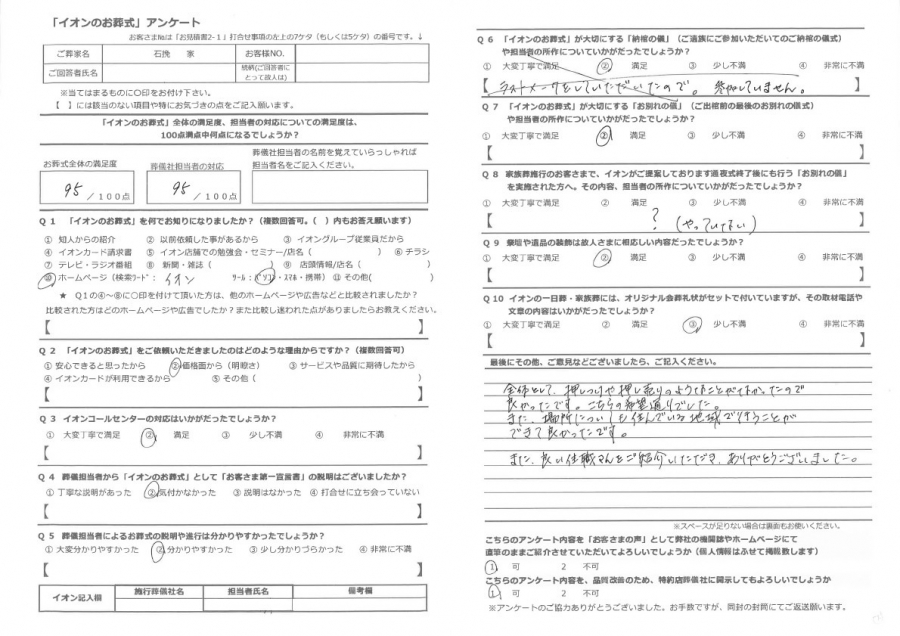 「イオンのお葬式」アンケート
お客さま№は「お見積書2-1」打合せ事項の左上の7ケタ（もしくは5ケタ）の番号です。↓
ご葬家名 石挽 家 お客様NO.
ご回答者氏名 続柄(ご回答者にとって故人は)
※当てはまるものに○印をお付け下さい。
【 】には該当のない項目や特にお気づきの点をご記入願います。
「イオンのお葬式」全体の満足度、担当者の対応についての満足度は、
100点満点中何点になるでしょうか？
お葬式全体の満足度 葬儀社担当者の対応 葬儀社担当者の名前を覚えていらっしゃれば
担当者名をご記入ください。
95 /100点 95 /100点
Q１ 「イオンのお葬式」を何でお知りになりましたか？（複数回答可。( ) 内もお答え願います）
① 知人からの紹介 ② 以前依頼した事があるから ③ イオングループ従業員だから
④ イオンカード請求書 ⑤ イオン店舗での勉強会・セミナー/店名（ ） ⑥ チラシ
⑦ テレビ・ラジオ番組 ⑧ 新聞・雑誌（ ） ⑨ 店頭情報/店名（ ）
⑩ ホームページ（検索ﾜｰﾄﾞ： イオン ﾂｰﾙ：パソコン・スマホ・携帯）⑪ その他( )
★ Q１の④～⑧に○印を付けて頂いた方は、他のホームページや広告などと比較されましたか？
比較された方はどのホームページや広告でしたか？また比較し迷われた点がありましたらお教えください。
【 】
Q２ 「イオンのお葬式」をご依頼いただきましたのはどのような理由からですか？（複数回答可）
① 安心できると思ったから ② 価格面から（明瞭さ） ③ サービスや品質に期待したから
④ イオンカードが利用できるから ⑤ その他（ ）
【 】
Q３ イオンコールセンターの対応はいかがだったでしょうか？
① 大変丁寧で満足 ② 満足 ③ 少し不満 ④ 非常に不満
【 】
Q４ 葬儀担当者から「イオンのお葬式」として「お客さま第一宣言書」の説明はございましたか？
① 丁寧な説明があった ② 気付かなかった ③ 説明はなかった ④ 打合せに立ち会っていない
【 】
Q５ 葬儀担当者によるお葬式の説明や進行は分かりやすかったでしょうか？
① 大変分かりやすかった ② 分かりやすかった ③ 少し分かりづらかった ④ 非常に不満
【 】
イオン記入欄 施行葬儀社名 担当者氏名 備考欄
Q６ 「イオンのお葬式」が大切にする「納棺の儀」（ご遺族にご参加いただいてのご納棺の儀式）
や担当者の所作についていかがだったでしょうか？
① 大変丁寧で満足 ② 満足 ③ 少し不満 ④ 非常に不満
【 ラストメークをしていただいたので。参加していません。 】
Q７ 「イオンのお葬式」が大切にする「お別れの儀」（ご出棺前の最後のお別れの儀式）
や担当者の所作についていかがだったでしょうか？
① 大変丁寧で満足 ② 満足 ③ 少し不満 ④ 非常に不満
【 】
Q８ 家族葬施行のお客さまで、イオンがご提案しております通夜式終了後にも行う「お別れの儀」
を実施された方へ。その内容、担当者の所作についていかがだったでしょうか？
① 大変丁寧で満足 ② 満足 ③ 少し不満 ④ 非常に不満
【 ？（やっていない） 】
Q９ 棄壇や遺品の装飾は故人さまに相応しい内容だったでしょうか？
① 大変丁寧で満足 ② 満足 ③ 少し不満 ④ 非常に不満
【 】
Q10 イオンの一日葬・家族葬には、オリジナル会葬礼状がセットで付いていますが、その取材電話や
文章の内容はいかがだったでしょうか？
① 大変丁寧で満足 ② 満足 ③ 少し不満 ④ 非常に不満
【 】
最後にその他、ご意見などございましたら、ご記入ください。
全体として、押しつけや押し売りのようなことがなかったので
良かったです。こちらの希望通りでした。
また、場所についても住んでいる地域で行うことが
できて良かったです。
また、良い住職さんをご紹介いただき、ありがとうございました。
※スペースが足りない場合は裏面もお使いください。
こちらのアンケート内容を「お客さまの声」として弊社の機関誌やホームページにて
直筆のままご紹介させていただいてよろしいでしょうか（個人情報はふせて掲載致します）
1 可 2 不可
こちらのアンケート内容を、品質改善のため、特約店葬儀社に開示してもよろしいでしょうか
1 可 2 不可
※アンケートのご協力ありがとうございました。お手数ですが、同封の封筒にてご返送願います。